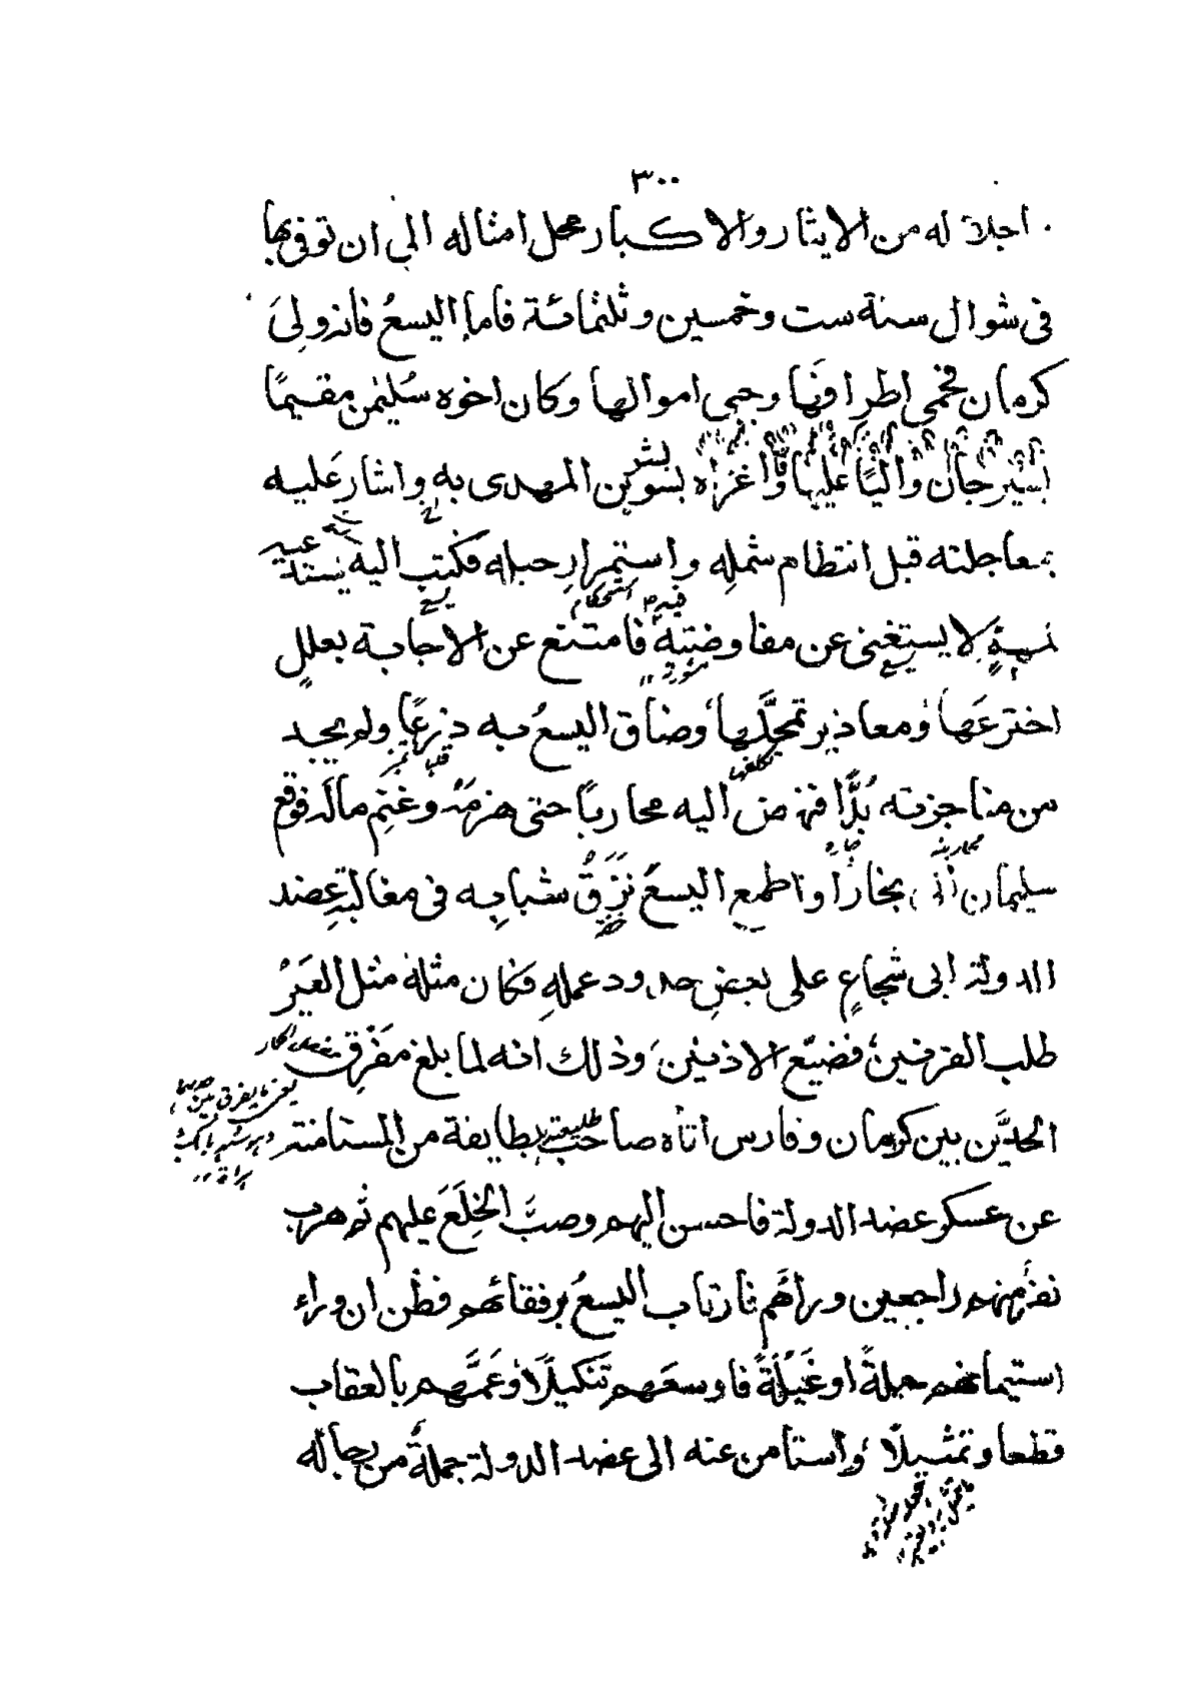 ٣٠٠
اجلالا له من الايثار والاكبار محل امثاله الى ان توفى بها
فى شوال سنة ست وخمسين وثلثمائة فاما اليسعُ فانه ولىَ
كرمان فحمى اطرافَها وجبى اموالها وكان اخوه سُليمٰن مقيمًا
بسَيْرجان واليًا عليها واغراه بشر بن المهدى به واشار عليه
بمعاجلته قبل انتظام شملِه واستمرارِ حبله فكتب اليه يستدعيه
استحكام
لمهمةٍ لا يستغنى عن مفاوضتِه فيه فامتنع عن الاجابة بعللٍ
اخترعَها ومعاذير تمحّلَها وضاق اليسعُ به ذرعًا ولم يجد
تكلفها قلبا
من مناجزته بُدًّا فنهض اليه محاربًا حتى هزمَهُ وغنِم مالَه فوقع
محاربته چاره
سليمان الى بخارا واطمع اليسعَ نَزَقُ شبابِه فى مغالبةِ عضد
الدولة ابى شجاعٍ على بعضِ حدود عملهِ فكان مثله مثل العَيْرُ
طلب القرنين فضيّع الاذنين وذلك انه لما بلغ مَفْرِق
الحدَّين بين كرمان وفارس اتاه صاحب طليعته بطايفة من المستامنة
عن عسكر عضد الدولة فاحسن اليهم وصبَّ الخِلَعَ عليهم ثم هرب
نفرٌ منهم راجعين وراءَهم فارتاب اليسعُ برفقائهم فظن ان وراء
استيمانهم حيلةً او غَيْلَةً فاوسعَهم تَنكيلًا وعَمَّهم بالعقاب
قطعا وتمثيلًا واستامن عنه الى عضد الدولة جملةٌ من رجاله